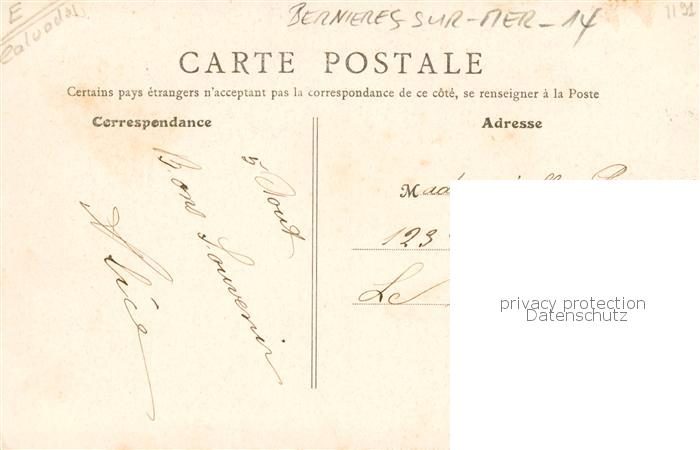 E
Calvados
BERNIERES-SUR-MER-14
1191
CARTE POSTALE
Certains pays étrangers n'acceptant pas la correspondance de ce côté, se renseigner à la Poste
Correspondance
Adresse
5 Aout
Bons Souvenir
Alice
123
Le
privacy protection
Datenschutz